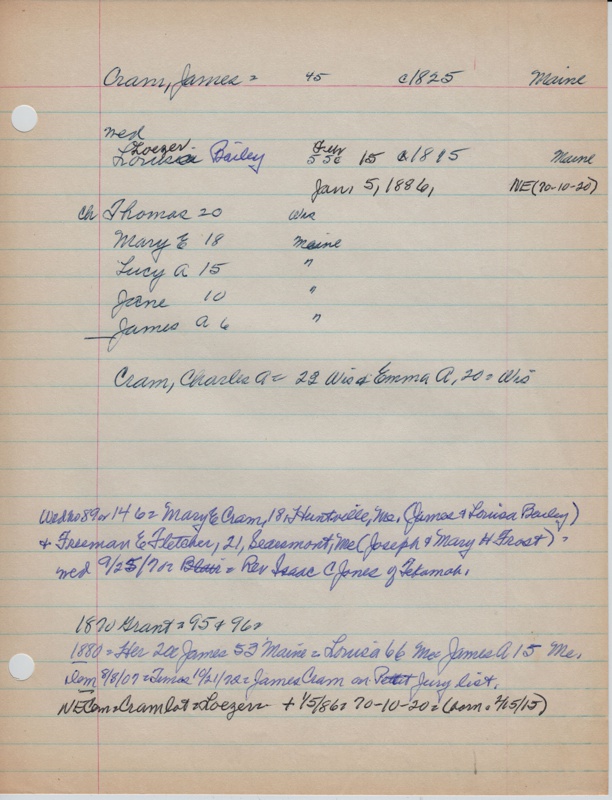 Cram, James = 45 c1825 Maine
wed
Loezer
Louisa Bailey 55c 15 c1815 Maine
Jan. 5, 1886, NE (70-10-20)
ch Thomas 20 Wis
Mary E 18 Maine
Lucy A 15 "
Jane 10 "
James A 6 "
Cram, Charles A = 22 Wis & Emma A, 20 = Wis
Wed No 89 or 146 = Mary E Cram, 18, Huntville, Me. (James & Lorisa Bailey)
& Freeman E Fletcher, 21, Searsmont, Me (Joseph & Mary H Frost) =
wed 9/25/70 = Blair = Rev Isaac C Jones of Tekamah.
1870 Grant = 95 & 96 =
1880 = Her 200 James 53 Maine = Louisa 66 Me James A 15 Me.
8/8/07 = Times 10/21/70 = James Cram on Petit Jury list.
NE Cem = Cram lot = Loezer + 1/5/86 = 70-10-20 = (born = 2/15/15)